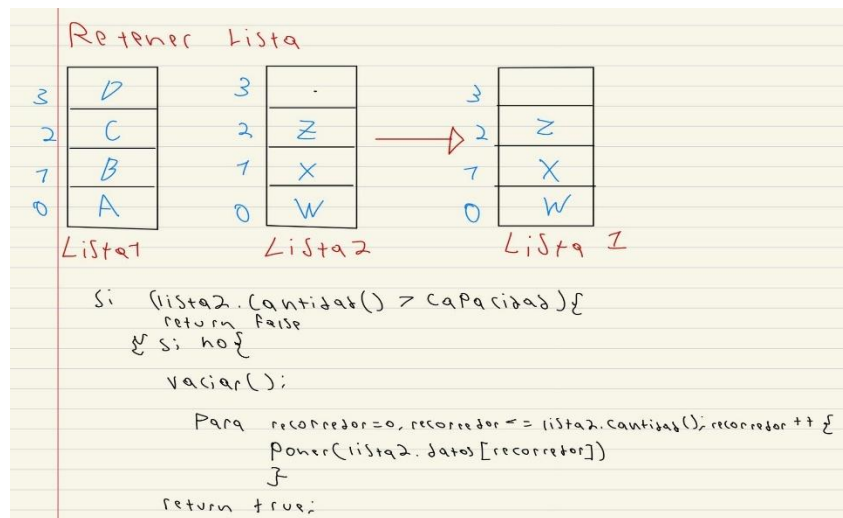 Retener Lista
3 D 3 . 3
2 C 2 Z 2 Z
1 B 1 X 1 X
0 A 0 W 0 W
Lista1 Lista2 Lista 1
Si (lista2.cantidad() > capacidad){
return false
} si no{
vaciar();
Para recorredor=0, recorredor <= lista2.cantidad(); recorredor ++ {
Poner(lista2.datos[recorredor])
}
return true;